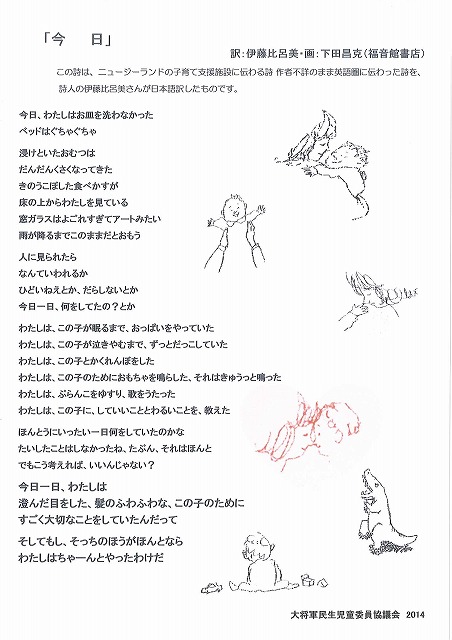 「今　日」
訳：伊藤比呂美・画：下田昌克（福音館書店）
この詩は、ニュージーランドの子育て支援施設に伝わる詩 作者不詳のまま英語圏に伝わった詩を、
詩人の伊藤比呂美さんが日本語訳したものです。
今日、わたしはお皿を洗わなかった
ベッドはぐちゃぐちゃ
浸けといたおむつは
だんだんくさくなってきた
きのうこぼした食べかすが
床の上からわたしを見ている
窓ガラスはよごれすぎてアートみたい
雨が降るまでこのままだとおもう
人に見られたら
なんていわれるか
ひどいねえとか、だらしないとか
今日一日、何をしてたの？とか
わたしは、この子が眠るまで、おっぱいをやっていた
わたしは、この子が泣きやむまで、ずっとだっこしていた
わたしは、この子とかくれんぼをした
わたしは、この子のためにおもちゃを鳴らした、それはきゅうっと鳴った
わたしは、ぶらんこをゆすり、歌をうたった
わたしは、この子に、していいこととわるいことを、教えた
ほんとうにいったい一日何をしていたのかな
たいしたことはしなかったね、たぶん、それはほんと
でもこう考えれば、いいんじゃない？
今日一日、わたしは
澄んだ目をした、髪のふわふわな、この子のために
すごく大切なことをしていたんだって
そしてもし、そっちのほうがほんとなら
わたしはちゃーんとやったわけだ
大将軍民生児童委員協議会　2014